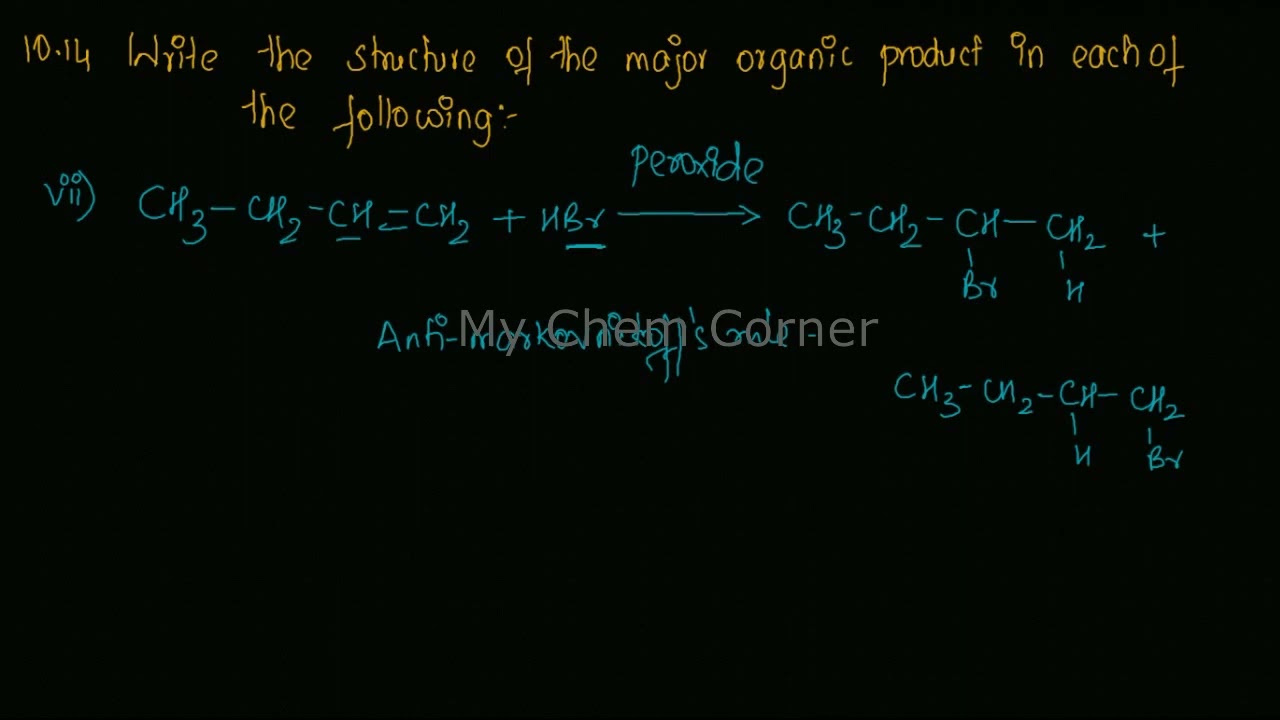 10.14 Write the structure of the major organic product in each of
the following:-
Peroxide
vii) CH3-CH2-CH=CH2 + HBr → CH3-CH2-CH-CH2 +
Br H
Anti-markovnikoff's rule -
My Chem Corner
CH3-CH2-CH-CH2
H Br